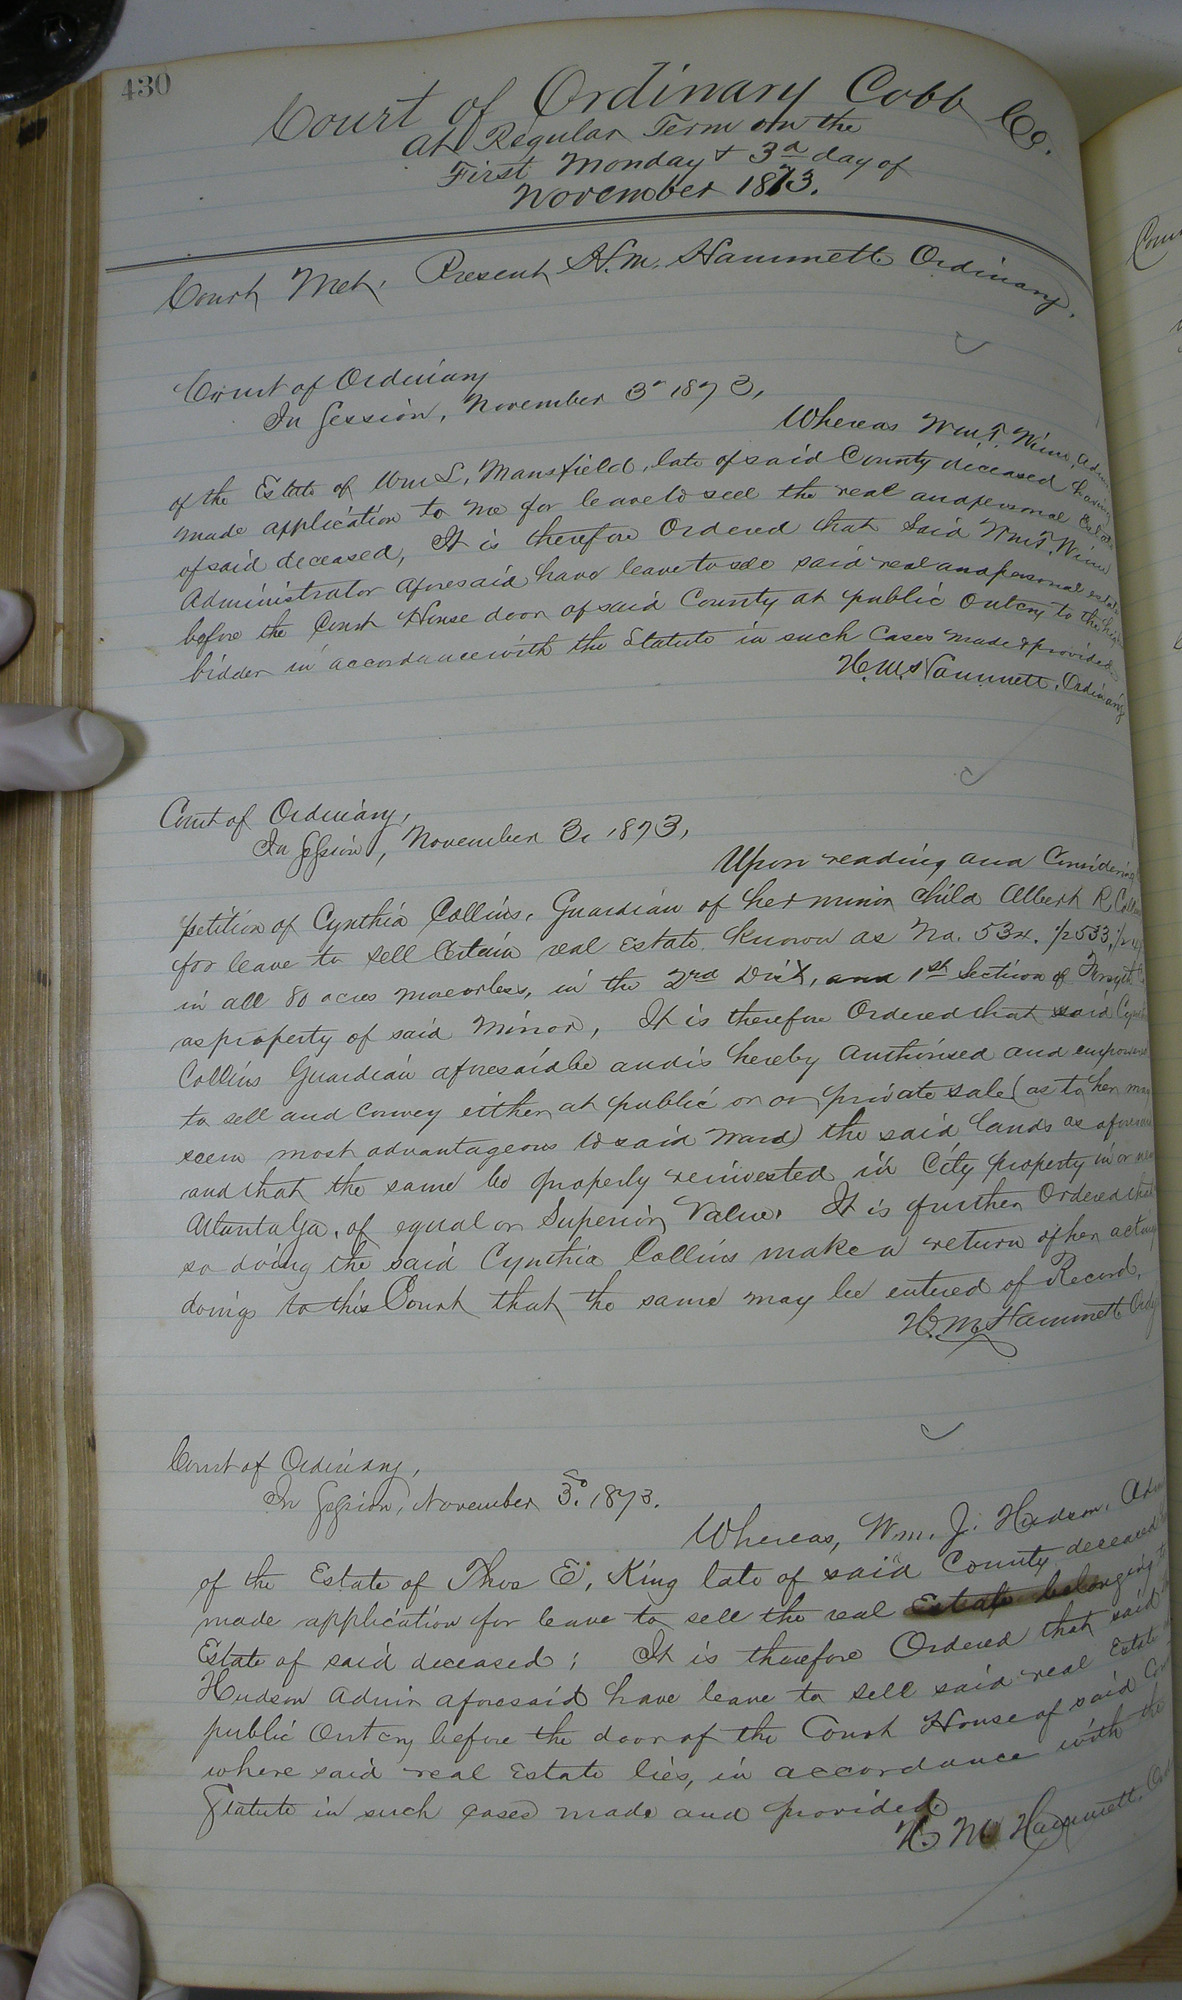 430
Court of Ordinary Cobb Co.
At Regular Term on the
First Monday & 3d day of
November 1873.
Court Met, Present H. M. Hammett Ordinary.
Court of Ordinary
In Session, November 3d 1873,
Whereas Wm T. Winn, Admr
of the Estate of Wm S. Mansfield, late of said County deceased having
made application to me for leave to sell the real and personal Estate
of said deceased, It is therefore Ordered that Said Wm T. Winn
Administrator aforesaid have leave to sell said real and personal estate
before the Court House door of said County at public Outcry to the
bidder in accordance with the Statute in such Cases made & provided
H. M. Hammett, Ordinary
Court of Ordinary,
In Session, November 3, 1873,
Upon reading and Considering
petition of Cynthia Collins, Guardian of her minor child Albert R.
for leave to sell Certain real Estate known as No. 534. 1/2 533, 1/2
in all 80 acres more or less, in the 2rd Dist, and 1st Section of
as property of said Minor, It is therefore Ordered that said
Collins Guardian aforesaid be and is hereby Authorised and
to sell and convey either at public or or private sale (as to her may
seem most advantageous to said Ward) the said lands as
and that the same be properly reinvested in City property in or
Atlanta Ga. of equal or Superior Value. It is further Ordered that
so doing the said Cynthia Collins make a return of her
doings to this Court that the same may be entered of Record.
H. M. Hammett Ordy
Court of Ordinary,
In Session, November 3d. 1873.
Whereas, Wm. J. Hudson,
of the Estate of Thos E. King late of said County deceased
made application for leave to sell the real Estate belonging
Estate of said deceased; It is therefore Ordered that said
Hudson Admr aforesaid have leave to sell said real Estate
public Outcry before the door of the Court House of said
where said real Estate lies, in accordance with the
Statute in such cases made and provided
H. M. Hammett,